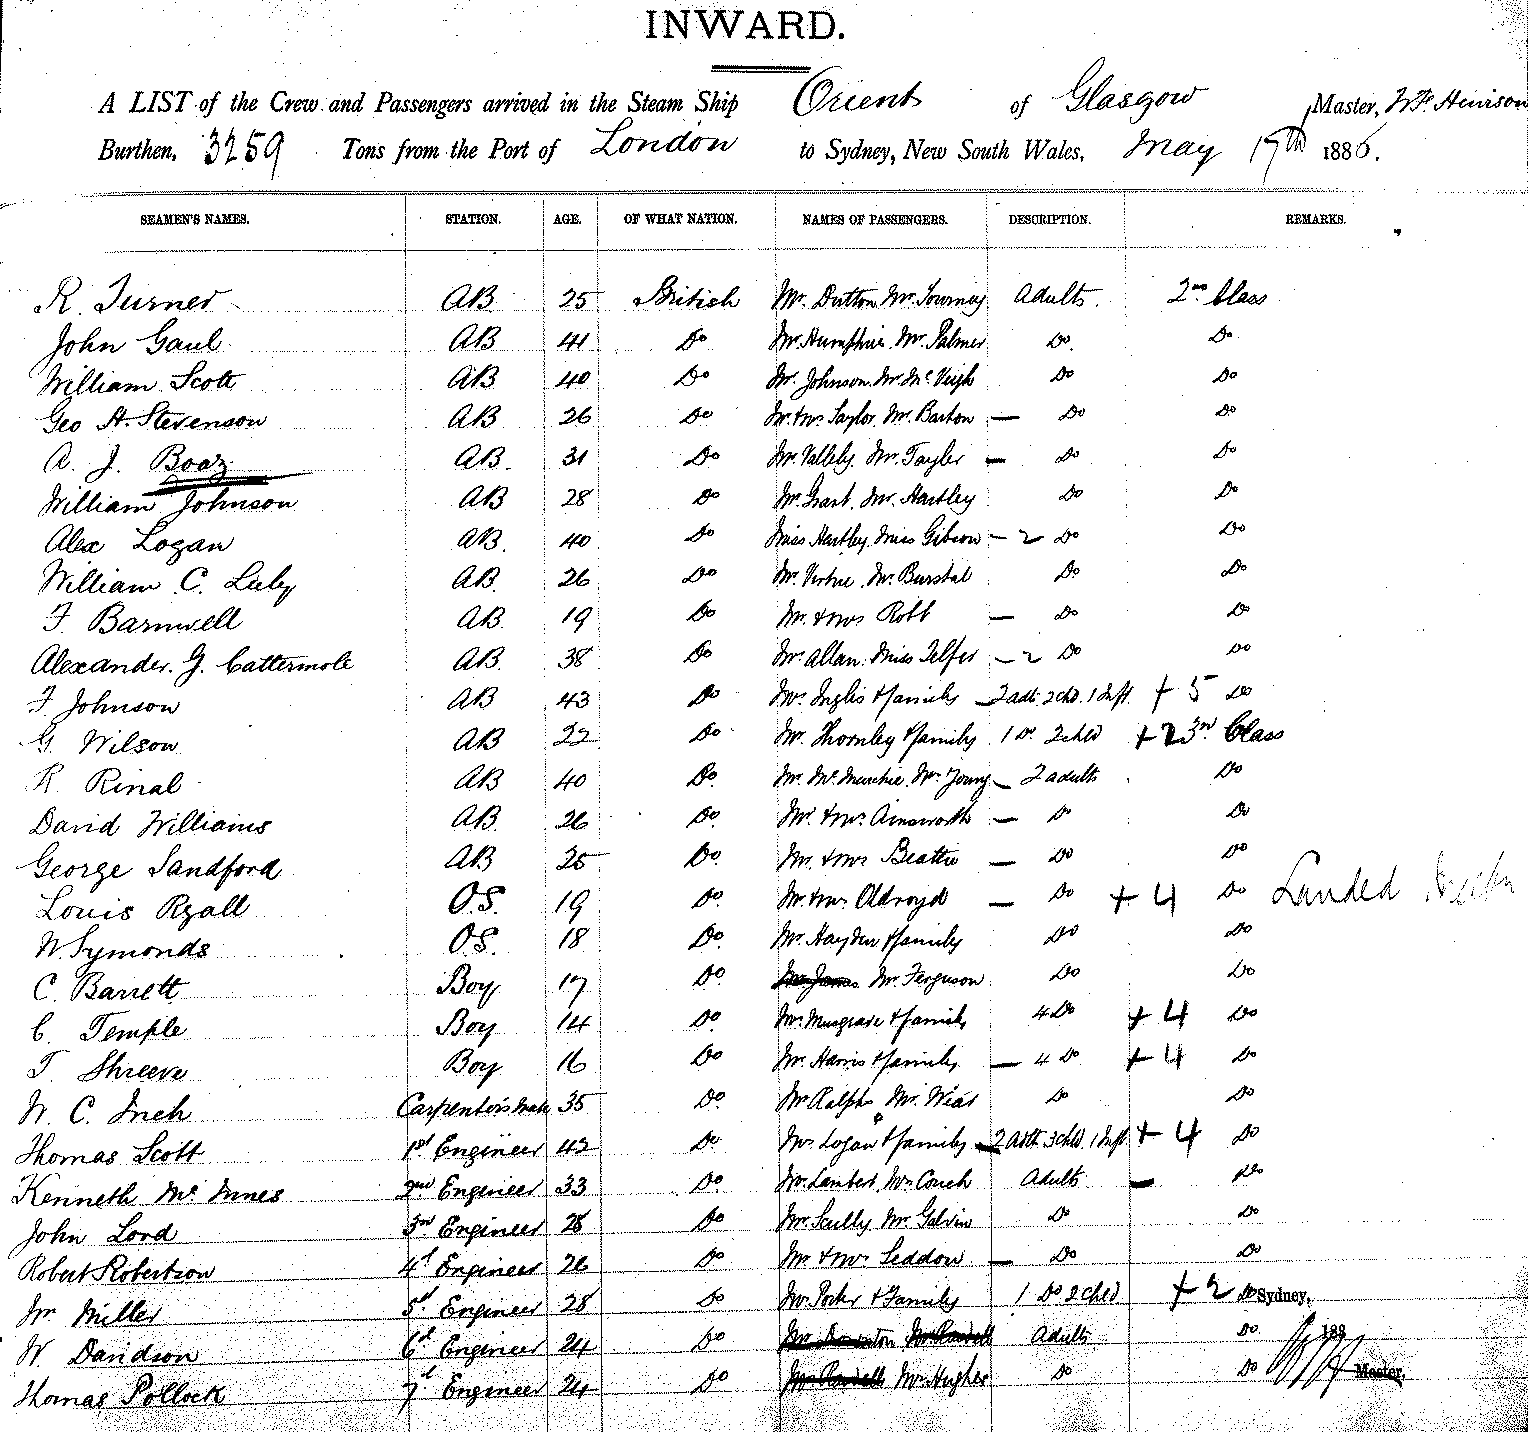 INWARD.
A LIST of the Crew and Passengers arrived in the Steam Ship Orient of Glasgow Master,
Burthen, 3259 Tons from the Port of London to Sydney, New South Wales, May 17th 1886.
SEAMEN'S NAMES. STATION. AGE. OF WHAT NATION. NAMES OF PASSENGERS. DESCRIPTION. REMARKS.
R. Turner AB 25 British Mr. Dutton Mr. Tourney Adults. 2nd Class
John Gaul AB 41 Do Mr Humphrie Mr. Palmer Do. Do
William Scott AB 40 Do Mr. Johnson Mr. McVeigh Do Do
Geo H. Stevenson AB 26 Do Mr. & Mrs Taylor, Mr. Barton — Do Do
A. J. Boaz AB. 31 Do Mr. Vallely. Mr. Tayler — Do Do
William Johnson AB 28 Do Mr. Grant. Mr. Hartley Do Do
Alex Logan AB. 40 Do Miss Hartley. Miss Gibson — 2 Do Do
William. C. Luly AB. 26 Do Mr. Virtue, Mr. Burstal Do Do
F. Barnwell AB. 19 Do Mr. & Mrs Robb — Do Do
Alexander. G. Cattermole AB. 38 Do Mr. Allan. Miss Telfer — 2 Do Do
F Johnson AB 43 Do Mrs. Inglis & family — 2 adts 2 chd. 1 Inft + 5 Do
G. Wilson AB 22 Do Mr. Thornley & family 1 Do. 2 chld + 2 3rd Class
R. Rinal AB 40 Do. Mr. McMurchie. Mr. Young — 2 adults Do
David Williams AB. 26 Do. Mr. & Mrs Ainsworth — D Do
George Sandford AB 25 Do. Mr. & Mrs Beattie — Do Do
Louis Ryall O.S. 19 Do. Mr. & Mrs. Oldroyd — Do + 4 Do Landed
W. Symonds O.S. 18 Do. Mr. Hayden & family Do Do
C. Barrett Boy 17 Do. Mr. Ferguson Do Do
C. Temple Boy 14 Do. Mrs. Musgrave & family 4 Do + 4 Do
T. Shreeve Boy 16 Do Mr. Harris & family — 4 Do + 4 Do
W. C. Inch Carpenter's Mate 35 Do. Mr. Ralph. Mr. Wear Do Do
Thomas Scott 1st Engineer 42 Do Mrs Logan & family — 2 Adth 3 chld. 1 Inft + 4 Do
Kenneth Mc Innes 2nd Engineer 33 Do. Mr. Lambert. Mrs Couch Adults — Do
John Lord 3rd Engineer 28 Do Mr. Scully Mr. Galvin Do Do
Robert Robertson 4t Engineer 26 Do Mr & Mrs Seddon — Do Do
Wm Miller 5t Engineer 28 Do & Family 1 Do 2 chld + 2 Do Sydney,
W. Davidson 6t Engineer 24 Do Adults Do 188
Thomas Pollock 7t Engineer 24 Do Mr. Hughes Do Do Master.